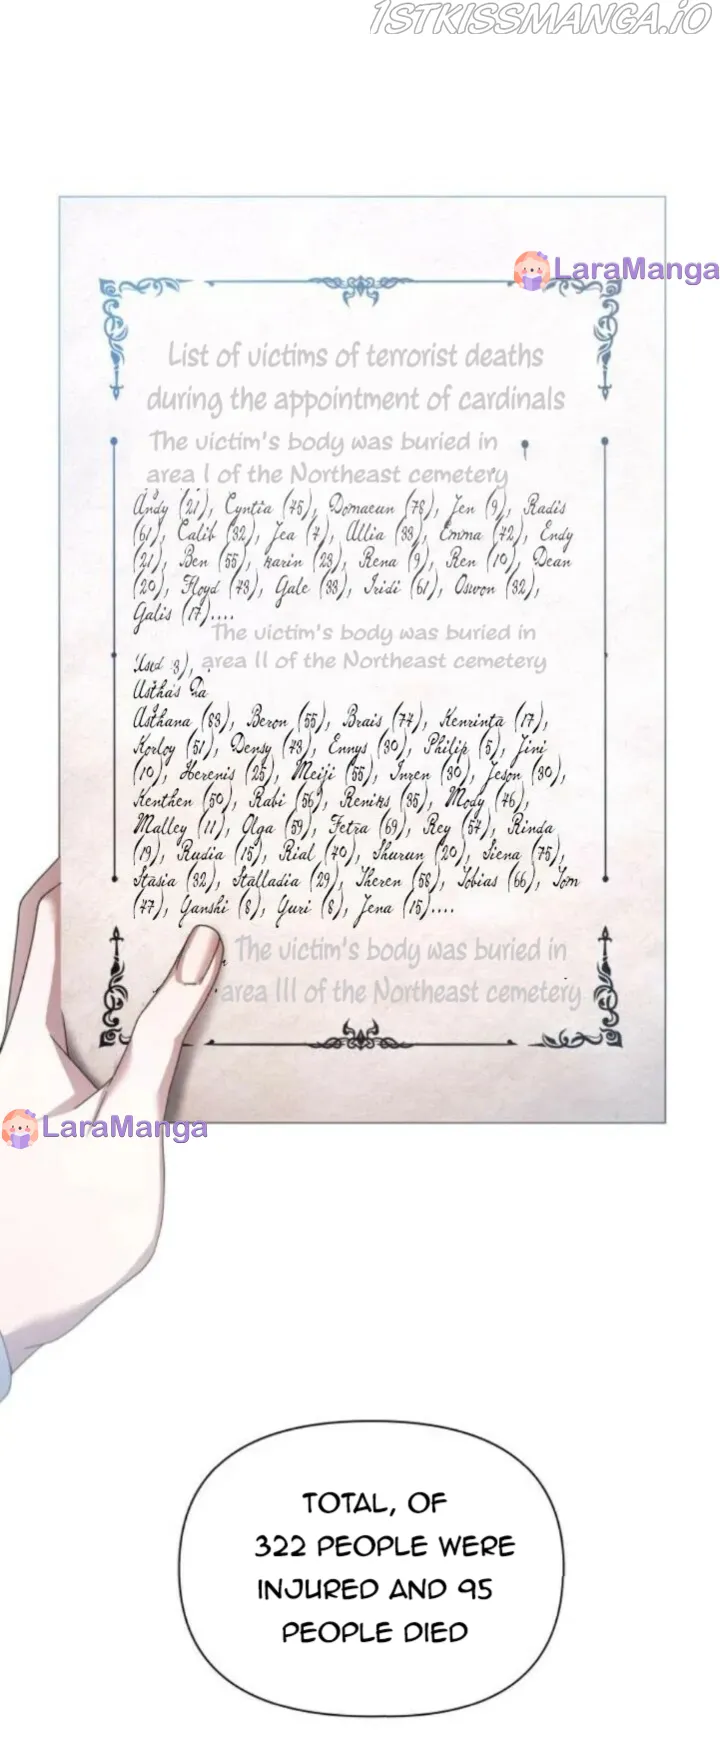 1STKISSMANGA.IO
LaraManga
List of victims of terrorist deaths
during the appointment of cardinals
The victim's body was buried in
area I of the Northeast cemetery
Andy (21), Cyntia (75), Domaeun (78), Jen (9), Radis
(61), Calib (32), Jea (7), Allia (33), Emma (72), Endy
(21), Ben (55), karin (23), Rena (9), Ren (10), Dean
(20), Floyd (73), Gale (33), Iridi (61), Oswon (32),
Galis (17)....
The victim's body was buried in
area II of the Northeast cemetery
3),
Asthana (83), Beron (55), Brais (77), Kenrinta (17),
Korloy (51), Densy (73), Ennys (30), Philip (5), Jini
(10), Herenis (25), Meiji (55), Inren (30), Jeson (30),
Kenthen (50), Rabi (56), Reniks (35), Mody (76),
Malley (11), Olga (59), Fetra (69), Rey (57), Rinda
(19), Rudia (15), Rial (70), Shurun (20), Siena (75),
Stasia (32), Stalladia (29), Theren (58), Tobias (66), Tom
(77), Yanshi (8), Yuri (8), Jena (15)....
The victim's body was buried in
area III of the Northeast cemetery
LaraManga
TOTAL, OF
322 PEOPLE WERE
INJURED AND 95
PEOPLE DIED